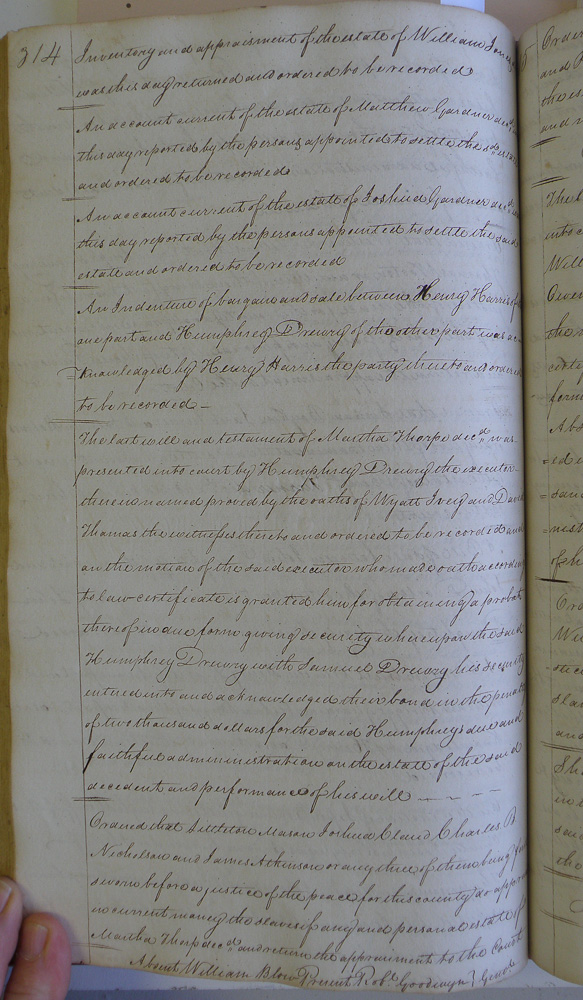 314
Inventory and appraisment of the estate of William Jones
was this day returned and ordered to be recorded
An account current of the estate of Matthew Gardner decd. was
this day reported by the persons appointed to settle the sd. estate
and ordered to be recorded
An account current of the estate of Joshua Gardner decd. was
this day reported by the persons appointed to settle the said
estate and ordered to be recorded
An Indenture of bargain and sale between Henry Harris of the
one part and Humphrey Drewry of the other part was ac-
=knowledged by Henry Harris the party thereto and ordered
to be recorded –
The last will and testament of Martha Thorpe decd. was
presented into court by Humphrey Drewry the executor
therein named proved by the oaths of Wyatt Ivey and David
Thomas the witnesses thereto and ordered to be recorded and
on the motion of the said executor who made oath according
to law certificate is granted him for obtaining a probate
thereof in due form giving security whereupon the said
Humphrey Drewry with Samuel Drewry his security
entered into and acknowledged their bond in the penalty
of two thousand dollars for the said Humphreys due and
faithful administration on the estate of the said
decedent and performance of his will — — —
Ordered that Littleton Mason Joshua Claud Charles B
Nicholson and James Atkinson or any three of them being first
sworn before a justice of the peace for this county do appraise
in current money the slaves if any and personal estate of
Martha Thorp decd. and return the appraisment to the Court
Absent William Blow Present Robt. Goodwyn } Gent.